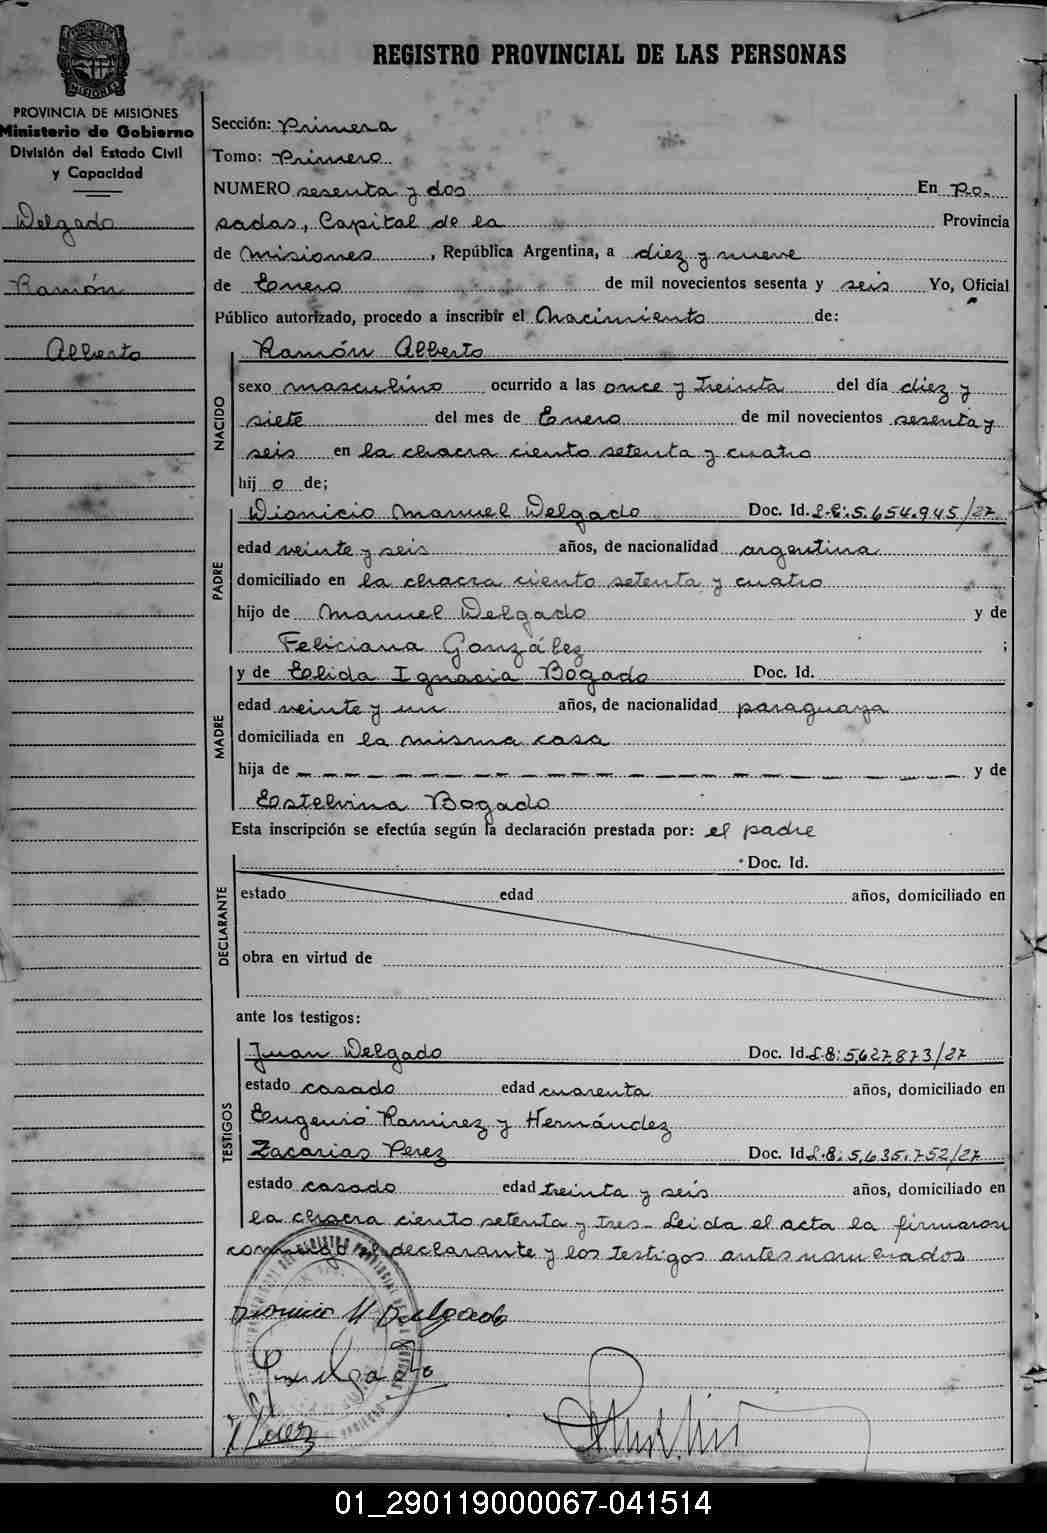 PROVINCIA DE MISIONES
Ministerio de Gobierno
División del Estado Civil
y Capacidad
Delgado
Ramón
Alberto
REGISTRO PROVINCIAL DE LAS PERSONAS
Sección: Primera
Tomo: Primero
NUMERO sesenta y dos En Po-
sadas, Capital de la Provincia
de Misiones, República Argentina, a diez y nueve
de Enero de mil novecientos sesenta y seis Yo, Oficial
Público autorizado, procedo a inscribir el Nacimiento de:
NACIDO
Ramón Alberto
sexo masculino ocurrido a las once y treinta del día diez y
siete del mes de Enero de mil novecientos sesenta y
seis en la chacra ciento setenta y cuatro
hijo de;
PADRE
Dionicio Manuel Delgado Doc. Id. L.E: 5.654.945/27
edad veinte y seis años, de nacionalidad argentina
domiciliado en la chacra ciento setenta y cuatro
hijo de Manuel Delgado y de
Feliciana González ;
MADRE
y de Elida Ignacia Bogado Doc. Id.
edad veinte y un años, de nacionalidad paraguaya
domiciliada en la misma casa
hija de y de
Estelvina Bogado
Esta inscripción se efectúa según la declaración prestada por: el padre
DECLARANTE
Doc. Id.
estado edad años, domiciliado en
obra en virtud de
ante los testigos:
TESTIGOS
Juan Delgado Doc. Id. L.E: 5.627.873/27
estado casado edad cuarenta años, domiciliado en
Eugenio Ramirez y Hernández
Zacarias Perez Doc. Id. L.E: 5.635.752/27
estado casado edad treinta y seis años, domiciliado en
la chacra ciento setenta y tres- Leida el acta la firmaron
conmigo el declarante y los testigos antes nombrados
Dionicio M Delgado
Z Perez
01_290119000067-041514